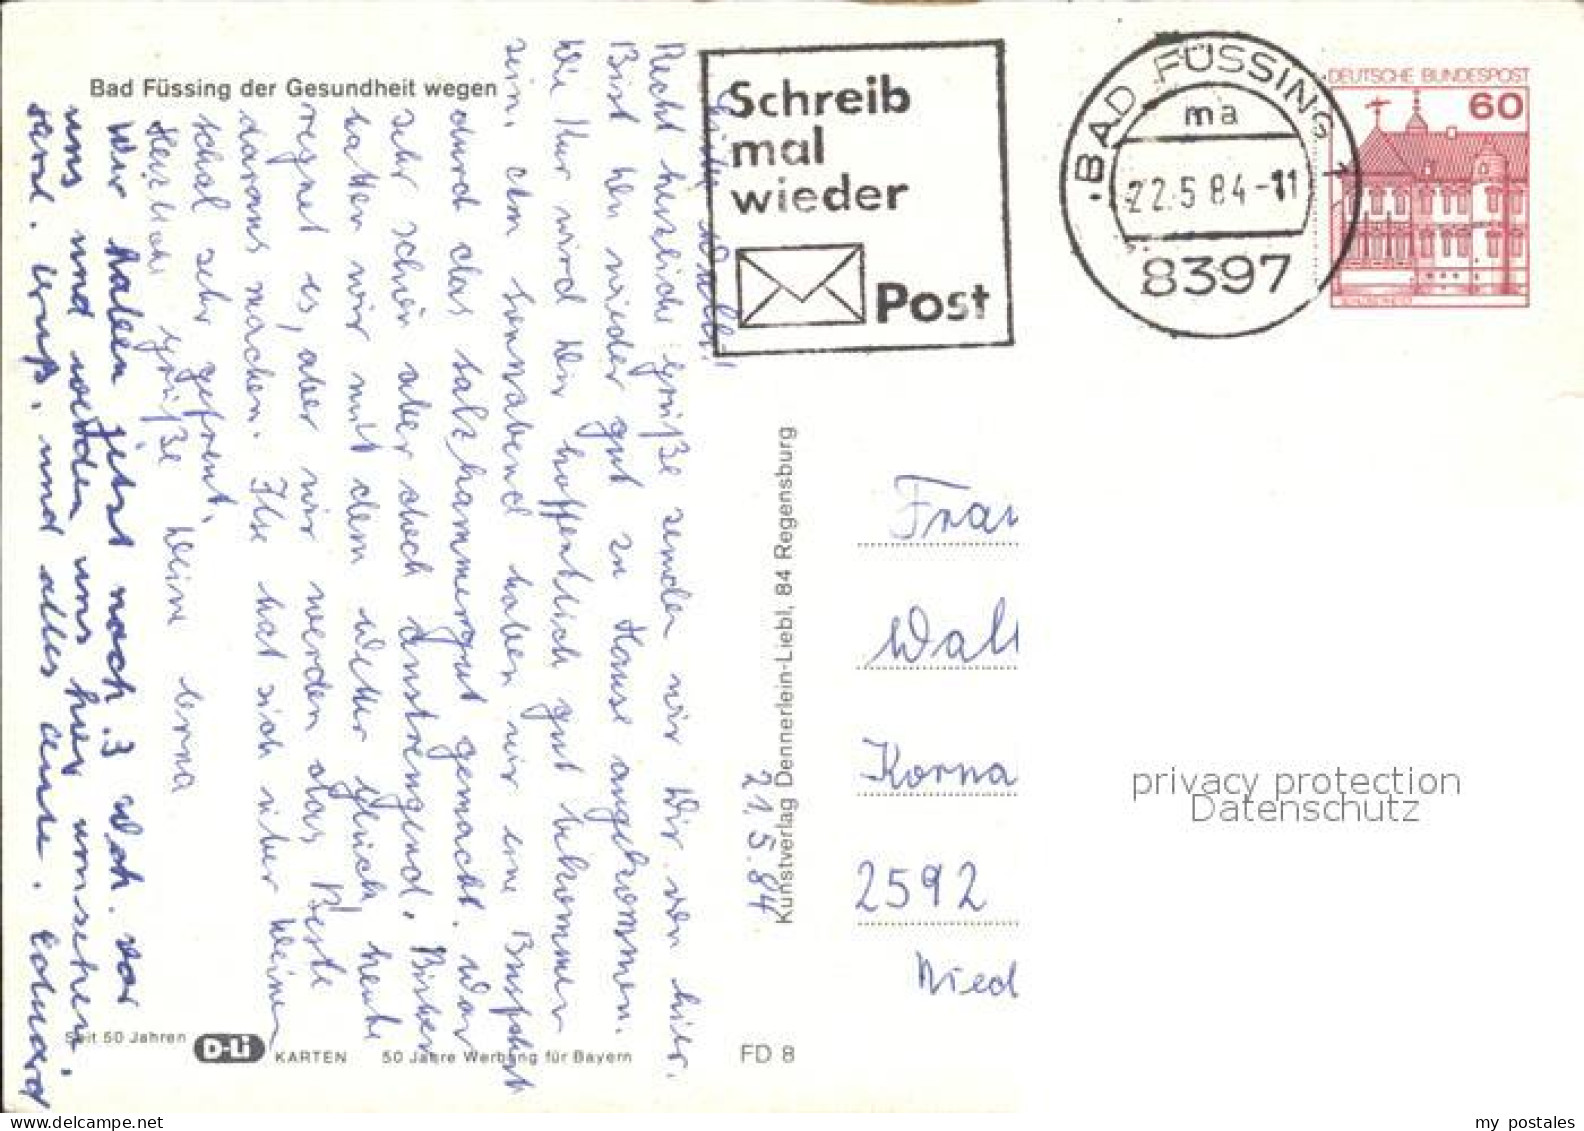 Bad Füssing der Gesundheit wegen
Schreib
mal
wieder
Post
BAD FÜSSING 1
ma
22.5.84-11
8397
DEUTSCHE BUNDESPOST
60
21.5.84
Recht herzliche Grüße senden wir Dir von hier.
Bist Du wieder gut zu Hause angekommen.
Die Kur wird Dir hoffentlich gut bekommen
sein. Am Sonnabend haben wir eine Busfahrt
durch das Salzkammergut gemacht. War
sehr schön aber doch anstrengend. Bisher
hatten wir mit dem Wetter Glück, heute
regnet es, aber wir werden das Beste
daraus machen. Ilse hat sich über Deinen
Schal sehr gefreut.
Herzliche Grüße Deine Erna
Wir haben jetzt noch 3 Woh. vor
uns und werden uns hier umsehen.
und alles Gute. Eduard
Kunstverlag Dennerlein-Liebl, 84 Regensburg
Frau
Walt
Korna
2592
Nied
privacy protection
Datenschutz
Seit 50 Jahren
D-Li
KARTEN
50 Jahre Werbung für Bayern
FD 8
my postales